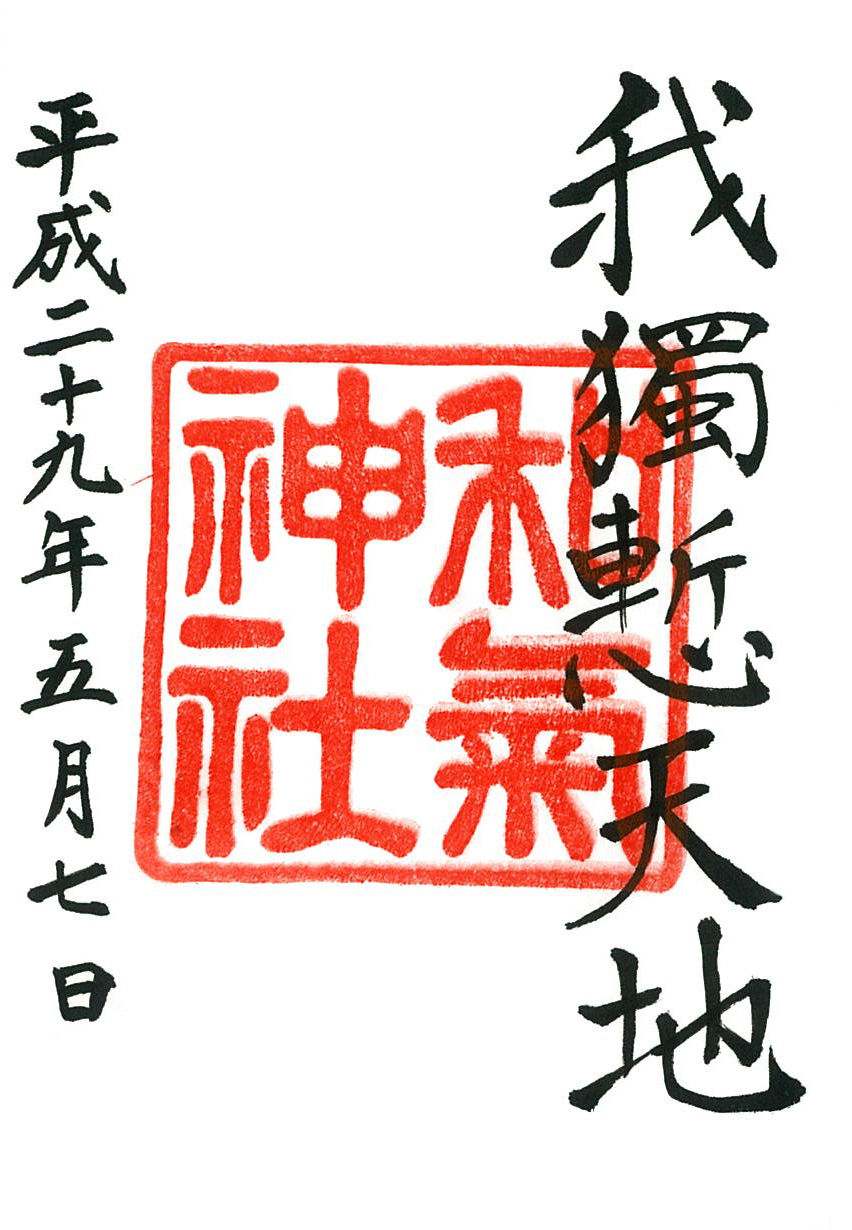 我獨慙天地
和氣
神社
平成二十九年五月七日